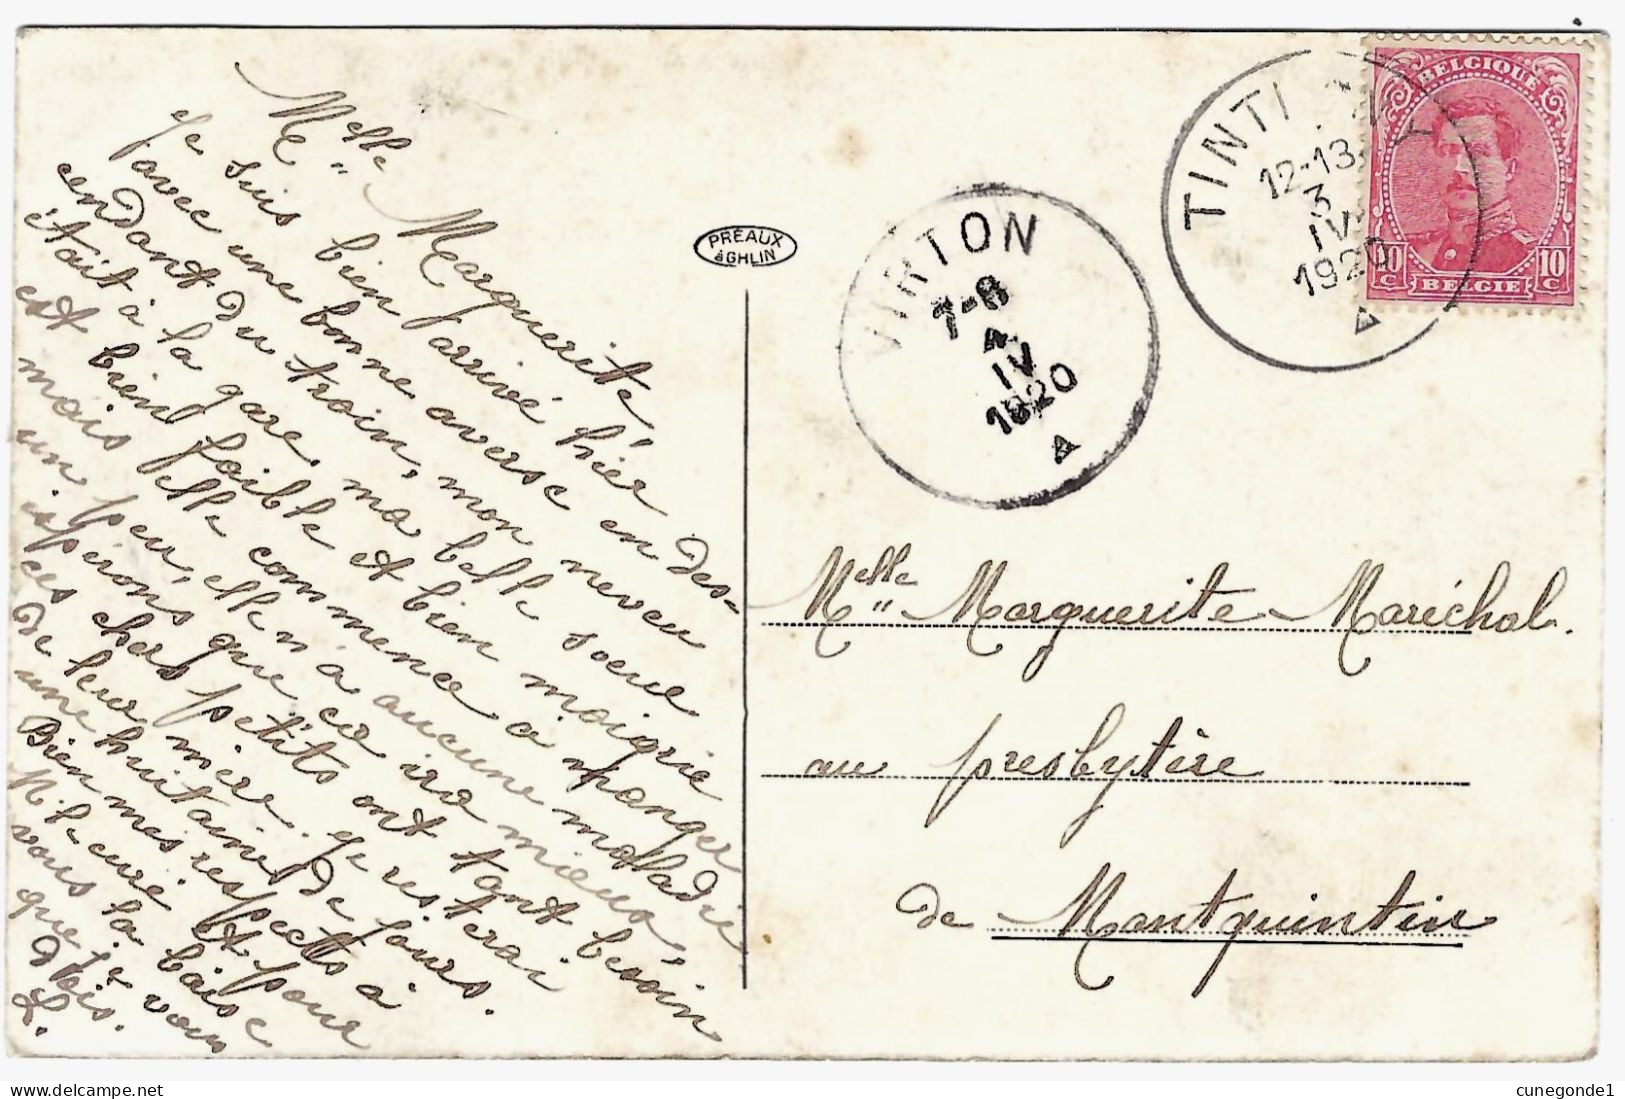 Melle Marguerite
Je suis bien arrivé hier
avec une bonne averse en des-
cendant du train, mon neveu
était à la gare, ma belle soeur
est bien faible et bien maigrie
mais elle commence à manger
un peu, elle n'a aucune maladie
espérons que ca ira mieux,
ces chers petits ont tant besoin
de leur mère. Je resterai
une huitaine de jours.
Bien mes respects à
M. le curé et pour
vous la baise
que je vous
dois.
L.
PRÉAUX
à GHLIN
VIRTON
7-8
4
IV
1920
A
TINTI
12-13
3
IV
1920
A
BELGIQUE
10 c 10 c
BELGIE
Melle Marguerite Maréchal.
au presbytère
de Montquintin
cunegonde1